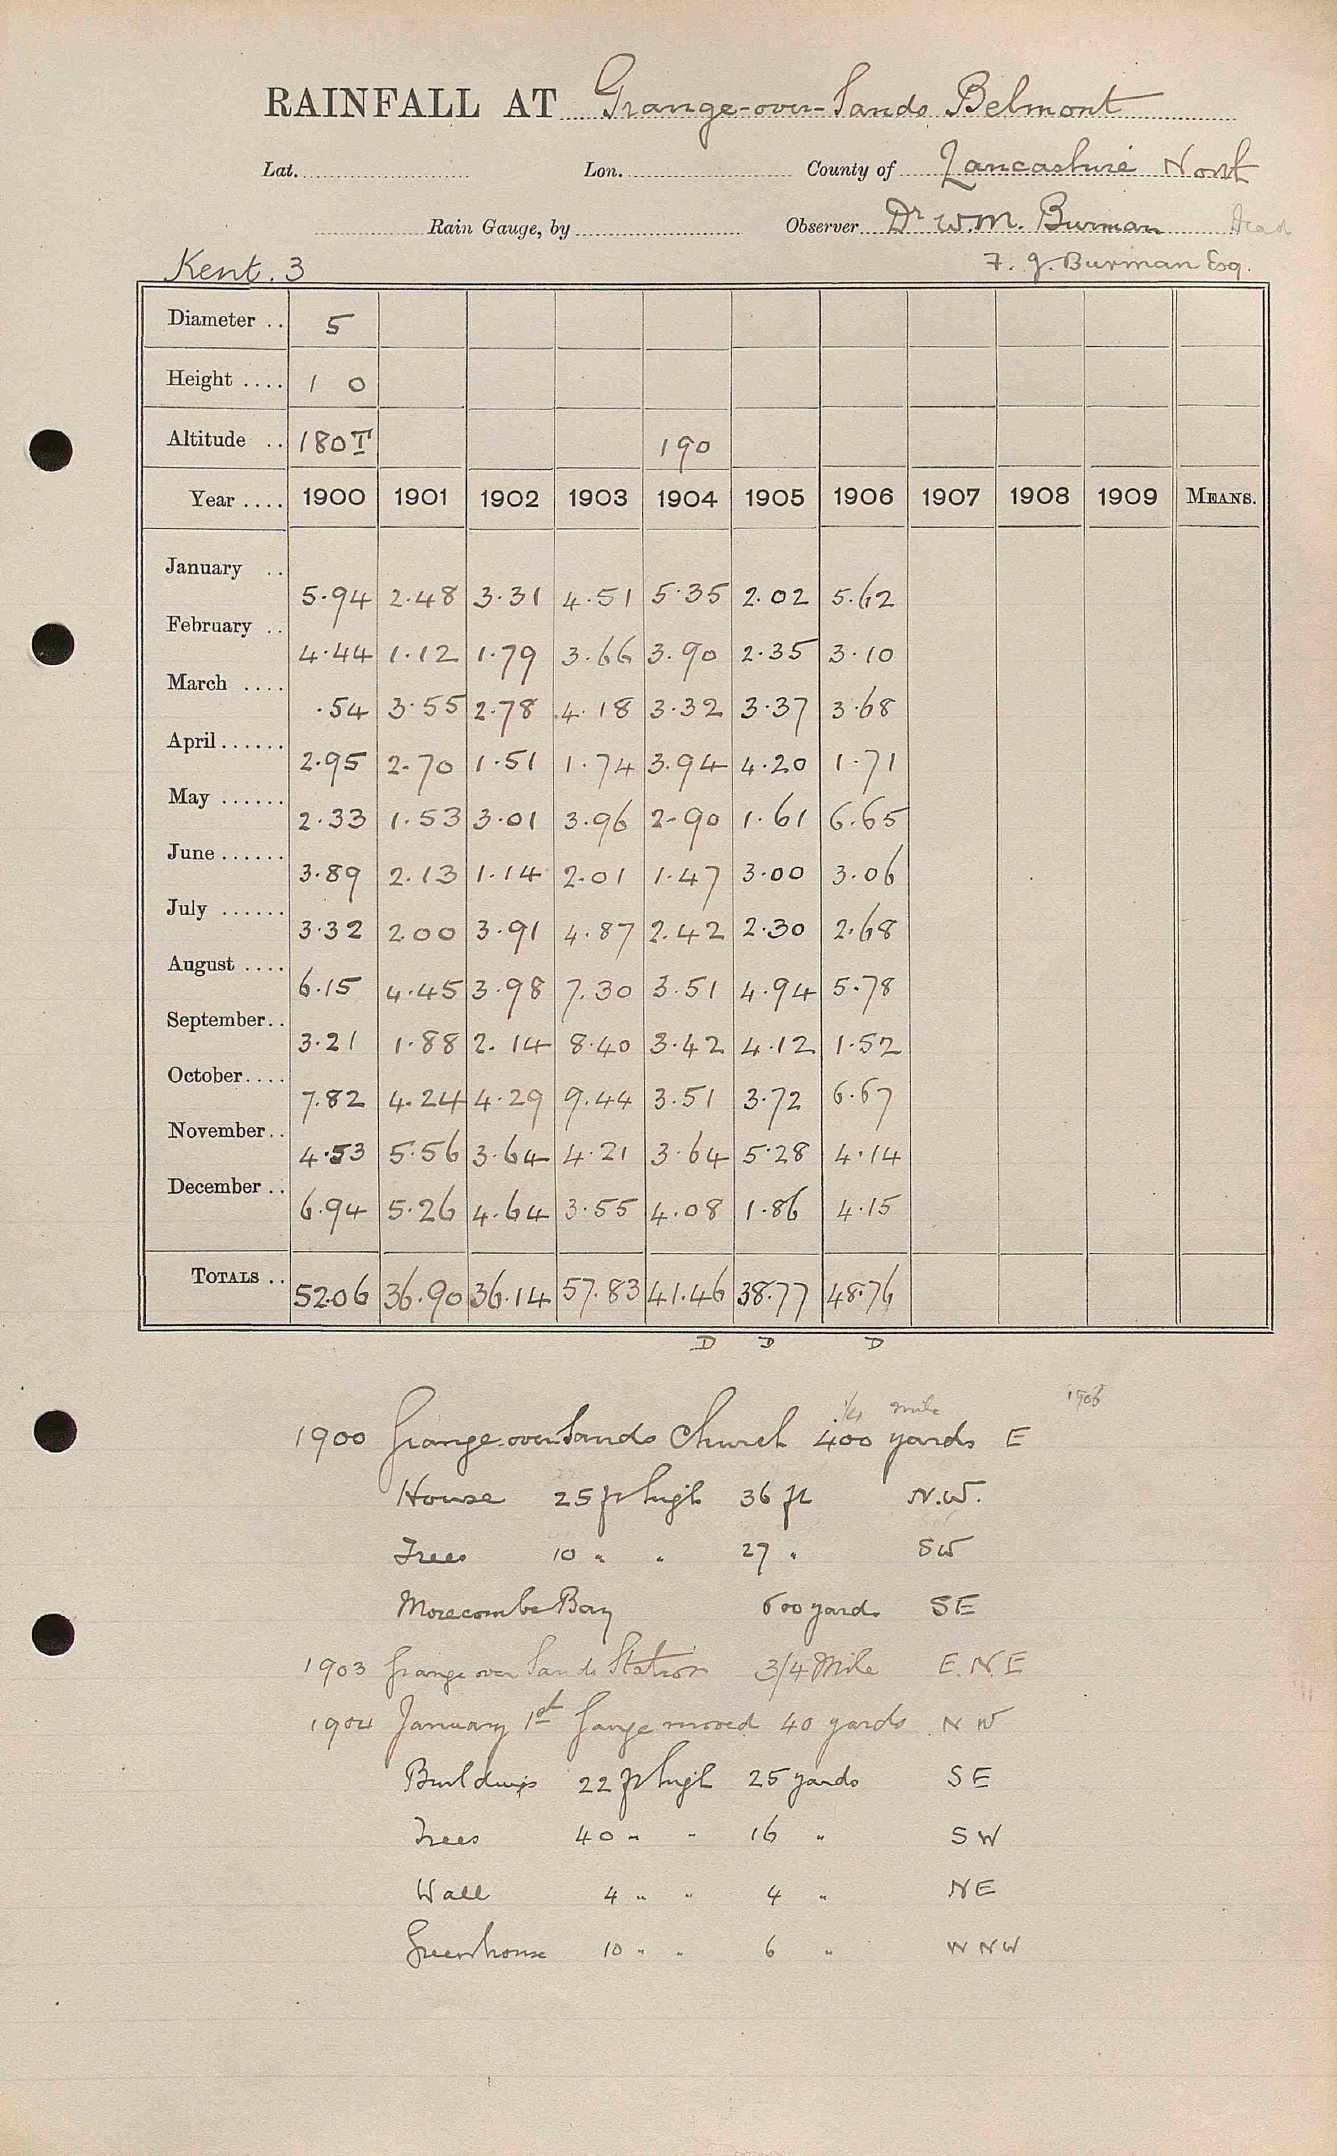 RAINFALL AT Grange-over-Sands Belmont
Lat. Lon. County of Lancashire North
Rain Gauge, by Observer Dr W.M. Burman Dead
Kent. 3 F. J. Burman Esq.
Diameter .. 5
Height .... 1 0
Altitude .. 180T 190
Year .... 1900 1901 1902 1903 1904 1905 1906 1907 1908 1909 MEANS.
January .. 5.94 2.48 3.31 4.51 5.35 2.02 5.62
February .. 4.44 1.12 1.79 3.66 3.90 2.35 3.10
March .... .54 3.55 2.78 4.18 3.32 3.37 3.68
April...... 2.95 2.70 1.51 1.74 3.94 4.20 1.71
May ...... 2.33 1.53 3.01 3.96 2.90 1.61 6.65
June ...... 3.89 2.13 1.14 2.01 1.47 3.00 3.06
July ...... 3.32 2.00 3.91 4.87 2.42 2.30 2.68
August .... 6.15 4.45 3.98 7.30 3.51 4.94 5.78
September.. 3.21 1.88 2.14 8.40 3.42 4.12 1.52
October.... 7.82 4.24 4.29 9.44 3.51 3.72 6.67
November.. 4.53 5.56 3.64 4.21 3.64 5.28 4.14
December .. 6.94 5.26 4.64 3.55 4.08 1.86 4.15
TOTALS .. 52.06 36.90 36.14 57.83 41.46 38.77 48.76
D D D
1/4 mile 1906
1900 Grange-over-Sands Church 400 yards E
House 25 ft high 36 ft N.W.
Trees 10 " " 27 " SW
Morecombe Bay 600 yards SE
1903 Grange over Sands Station 3/4 Mile E.N.E
1904 January 1st Gauge moved 40 yards NW
Buildings 22 ft high 25 yards SE
Trees 40 " " 16 " SW
Wall 4 " " 4 " NE
Greenhouse 10 " " 6 " WNW